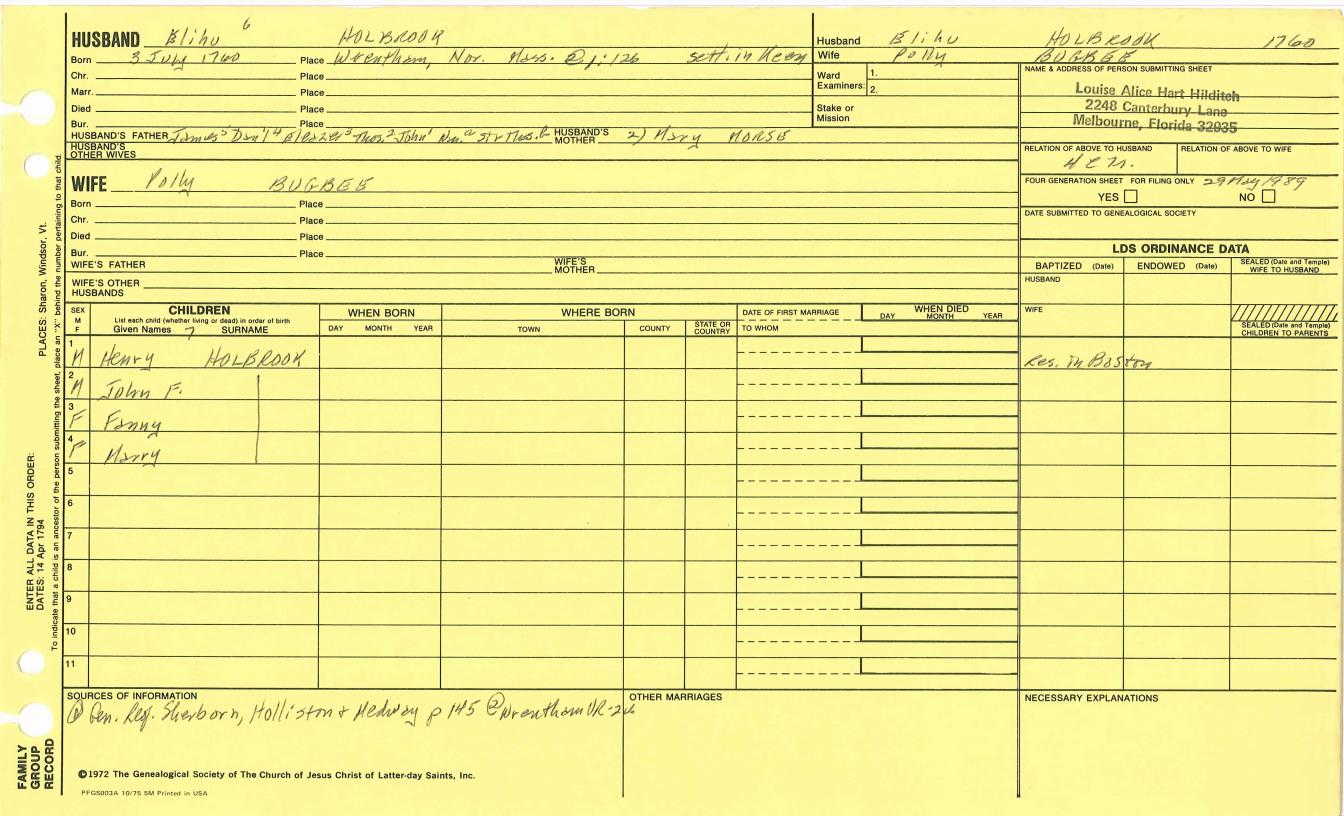 HUSBAND Elihu 6 HOLBROOK
Born 3 July 1760 Place Wrentham, Nor. Mass. @ 1:126 sett. in Keen
Chr. Place
Marr. Place
Died Place
Bur. Place
HUSBAND'S FATHER James5 Dan'l4 Eleazer3 Thos.2 John1 HUSBAND'S MOTHER 2) Mary MORSE
HUSBAND'S OTHER WIVES
WIFE Polly BUGBEE
Born Place
Chr. Place
Died Place
Bur. Place
WIFE'S FATHER WIFE'S MOTHER
WIFE'S OTHER HUSBANDS
Husband Elihu HOLBROOK 1760
Wife Polly BUGBEE
Ward Examiners: 1.
2.
Stake or Mission
NAME & ADDRESS OF PERSON SUBMITTING SHEET
Louise Alice Hart Hilditch
2248 Canterbury Lane
Melbourne, Florida 32935
RELATION OF ABOVE TO HUSBAND RELATION OF ABOVE TO WIFE
FOUR GENERATION SHEET FOR FILING ONLY 29 May 1989
YES NO
DATE SUBMITTED TO GENEALOGICAL SOCIETY
LDS ORDINANCE DATA
BAPTIZED (Date) ENDOWED (Date) SEALED (Date and Temple) WIFE TO HUSBAND
HUSBAND
WIFE
SEALED (Date and Temple) CHILDREN TO PARENTS
SEX M F
CHILDREN
List each child (whether living or dead) in order of birth
Given Names 7 SURNAME
WHEN BORN
DAY MONTH YEAR
WHERE BORN
TOWN COUNTY STATE OR COUNTRY
DATE OF FIRST MARRIAGE
TO WHOM
WHEN DIED
DAY MONTH YEAR
1 M Henry HOLBROOK Res. in Boston
2 M John F.
3 F Fanny
4 F Marry
5
6
7
8
9
10
11
SOURCES OF INFORMATION
@ Gen. Reg. Sherborn, Holliston & Medway p 145 @ Wrentham VR-
OTHER MARRIAGES
NECESSARY EXPLANATIONS
©1972 The Genealogical Society of The Church of Jesus Christ of Latter-day Saints, Inc.
PFGS003A 10/75 5M Printed in USA
PLACES: Sharon, Windsor, Vt.
ENTER ALL DATA IN THIS ORDER:
DATES: 14 Apr 1794
To indicate that a child is an ancestor of the person submitting the sheet, place an "X" behind the number pertaining to that child.
FAMILY GROUP RECORD